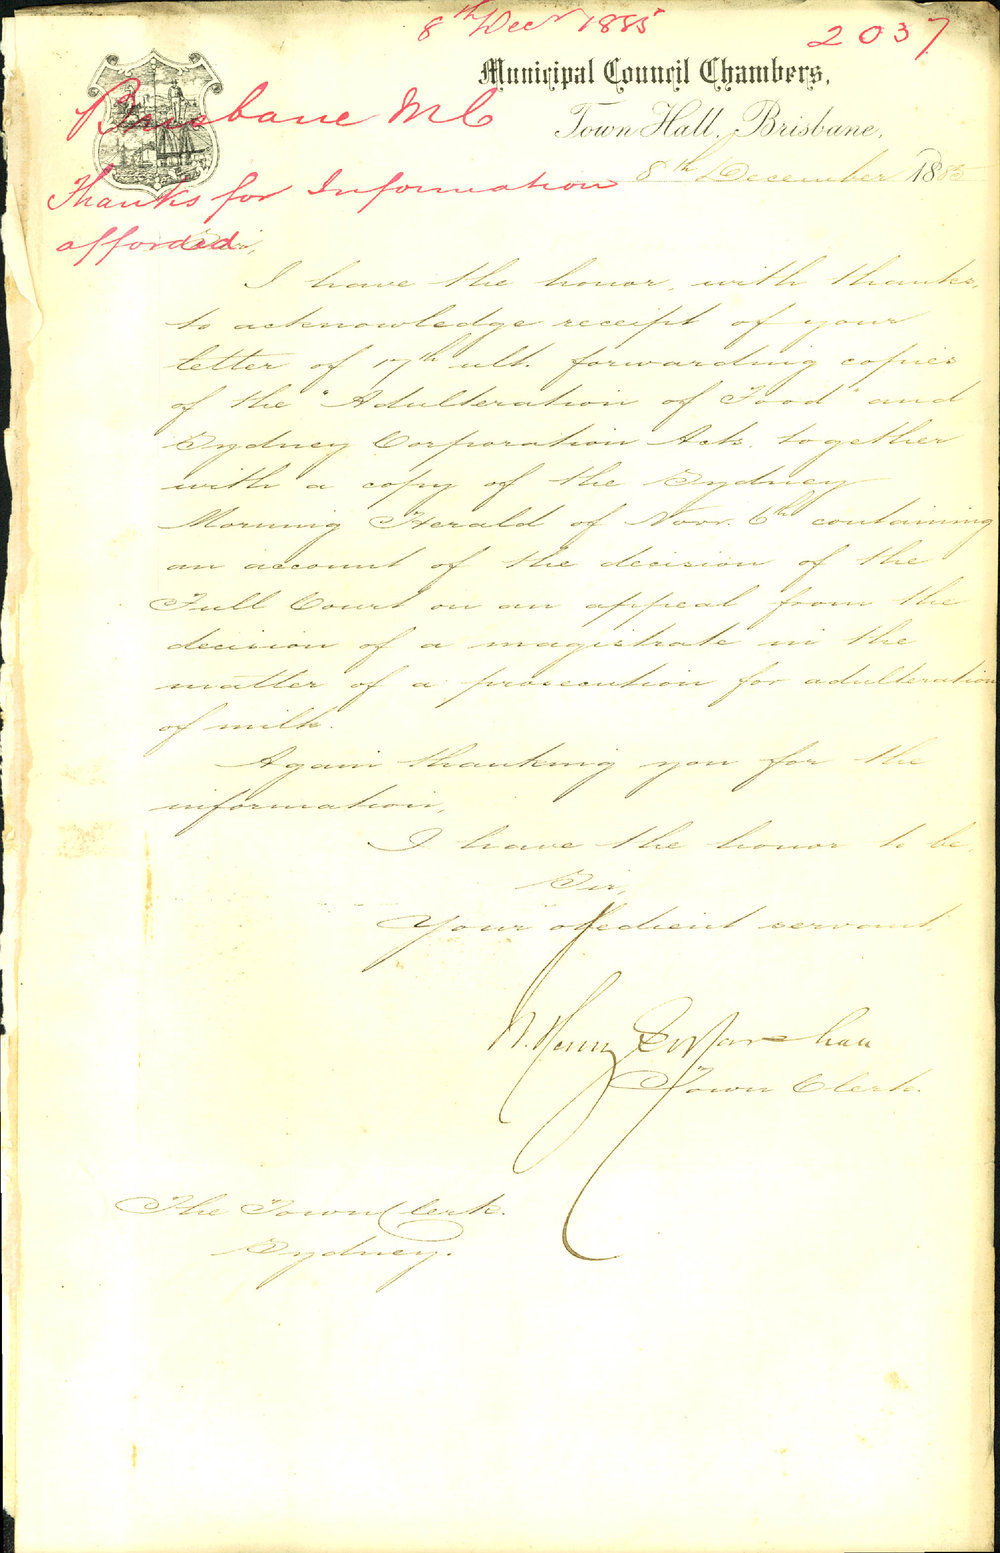 8th Decr 1885
2037
Municipal Council Chambers,
Brisbane MC
Town Hall, Brisbane,
8th December 1885
Thanks for Information
afforded
Sir,
I have the honor, with thanks,
to acknowledge receipt of your
letter of 17th ult. forwarding copies
of the "Adulteration of Food" and
Sydney Corporation Acts. together
with a copy of the Sydney
Morning Herald of Novr. 6th containing
an account of the decision of the
Full Court on an appeal from the
decision of a magistrate in the
matter of a prosecution for adulteration
of milk.
Again thanking you for the
information,
I have the honor to be,
Sir,
Your obedient servant.
W. Henry G. Marshall
Town Clerk.
The Town Clerk.
Sydney.